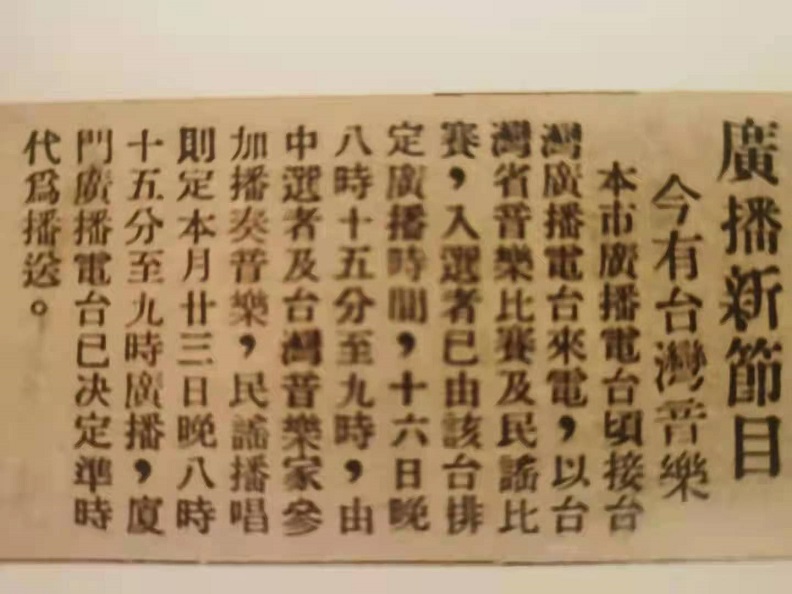 廣播新節目
今有台灣音樂
本市廣播電台頃接台
灣廣播電台來電，以台
灣省音樂比賽及民謠比
賽，入選者已由該台排
定廣播時間，十六日晚
八時十五分至九時，由
中選者及台灣音樂家參
加播奏音樂，民謠播唱
則定本月廿三日晚八時
十五分至九時廣播，廈
門廣播電台已決定準時
代為播送。